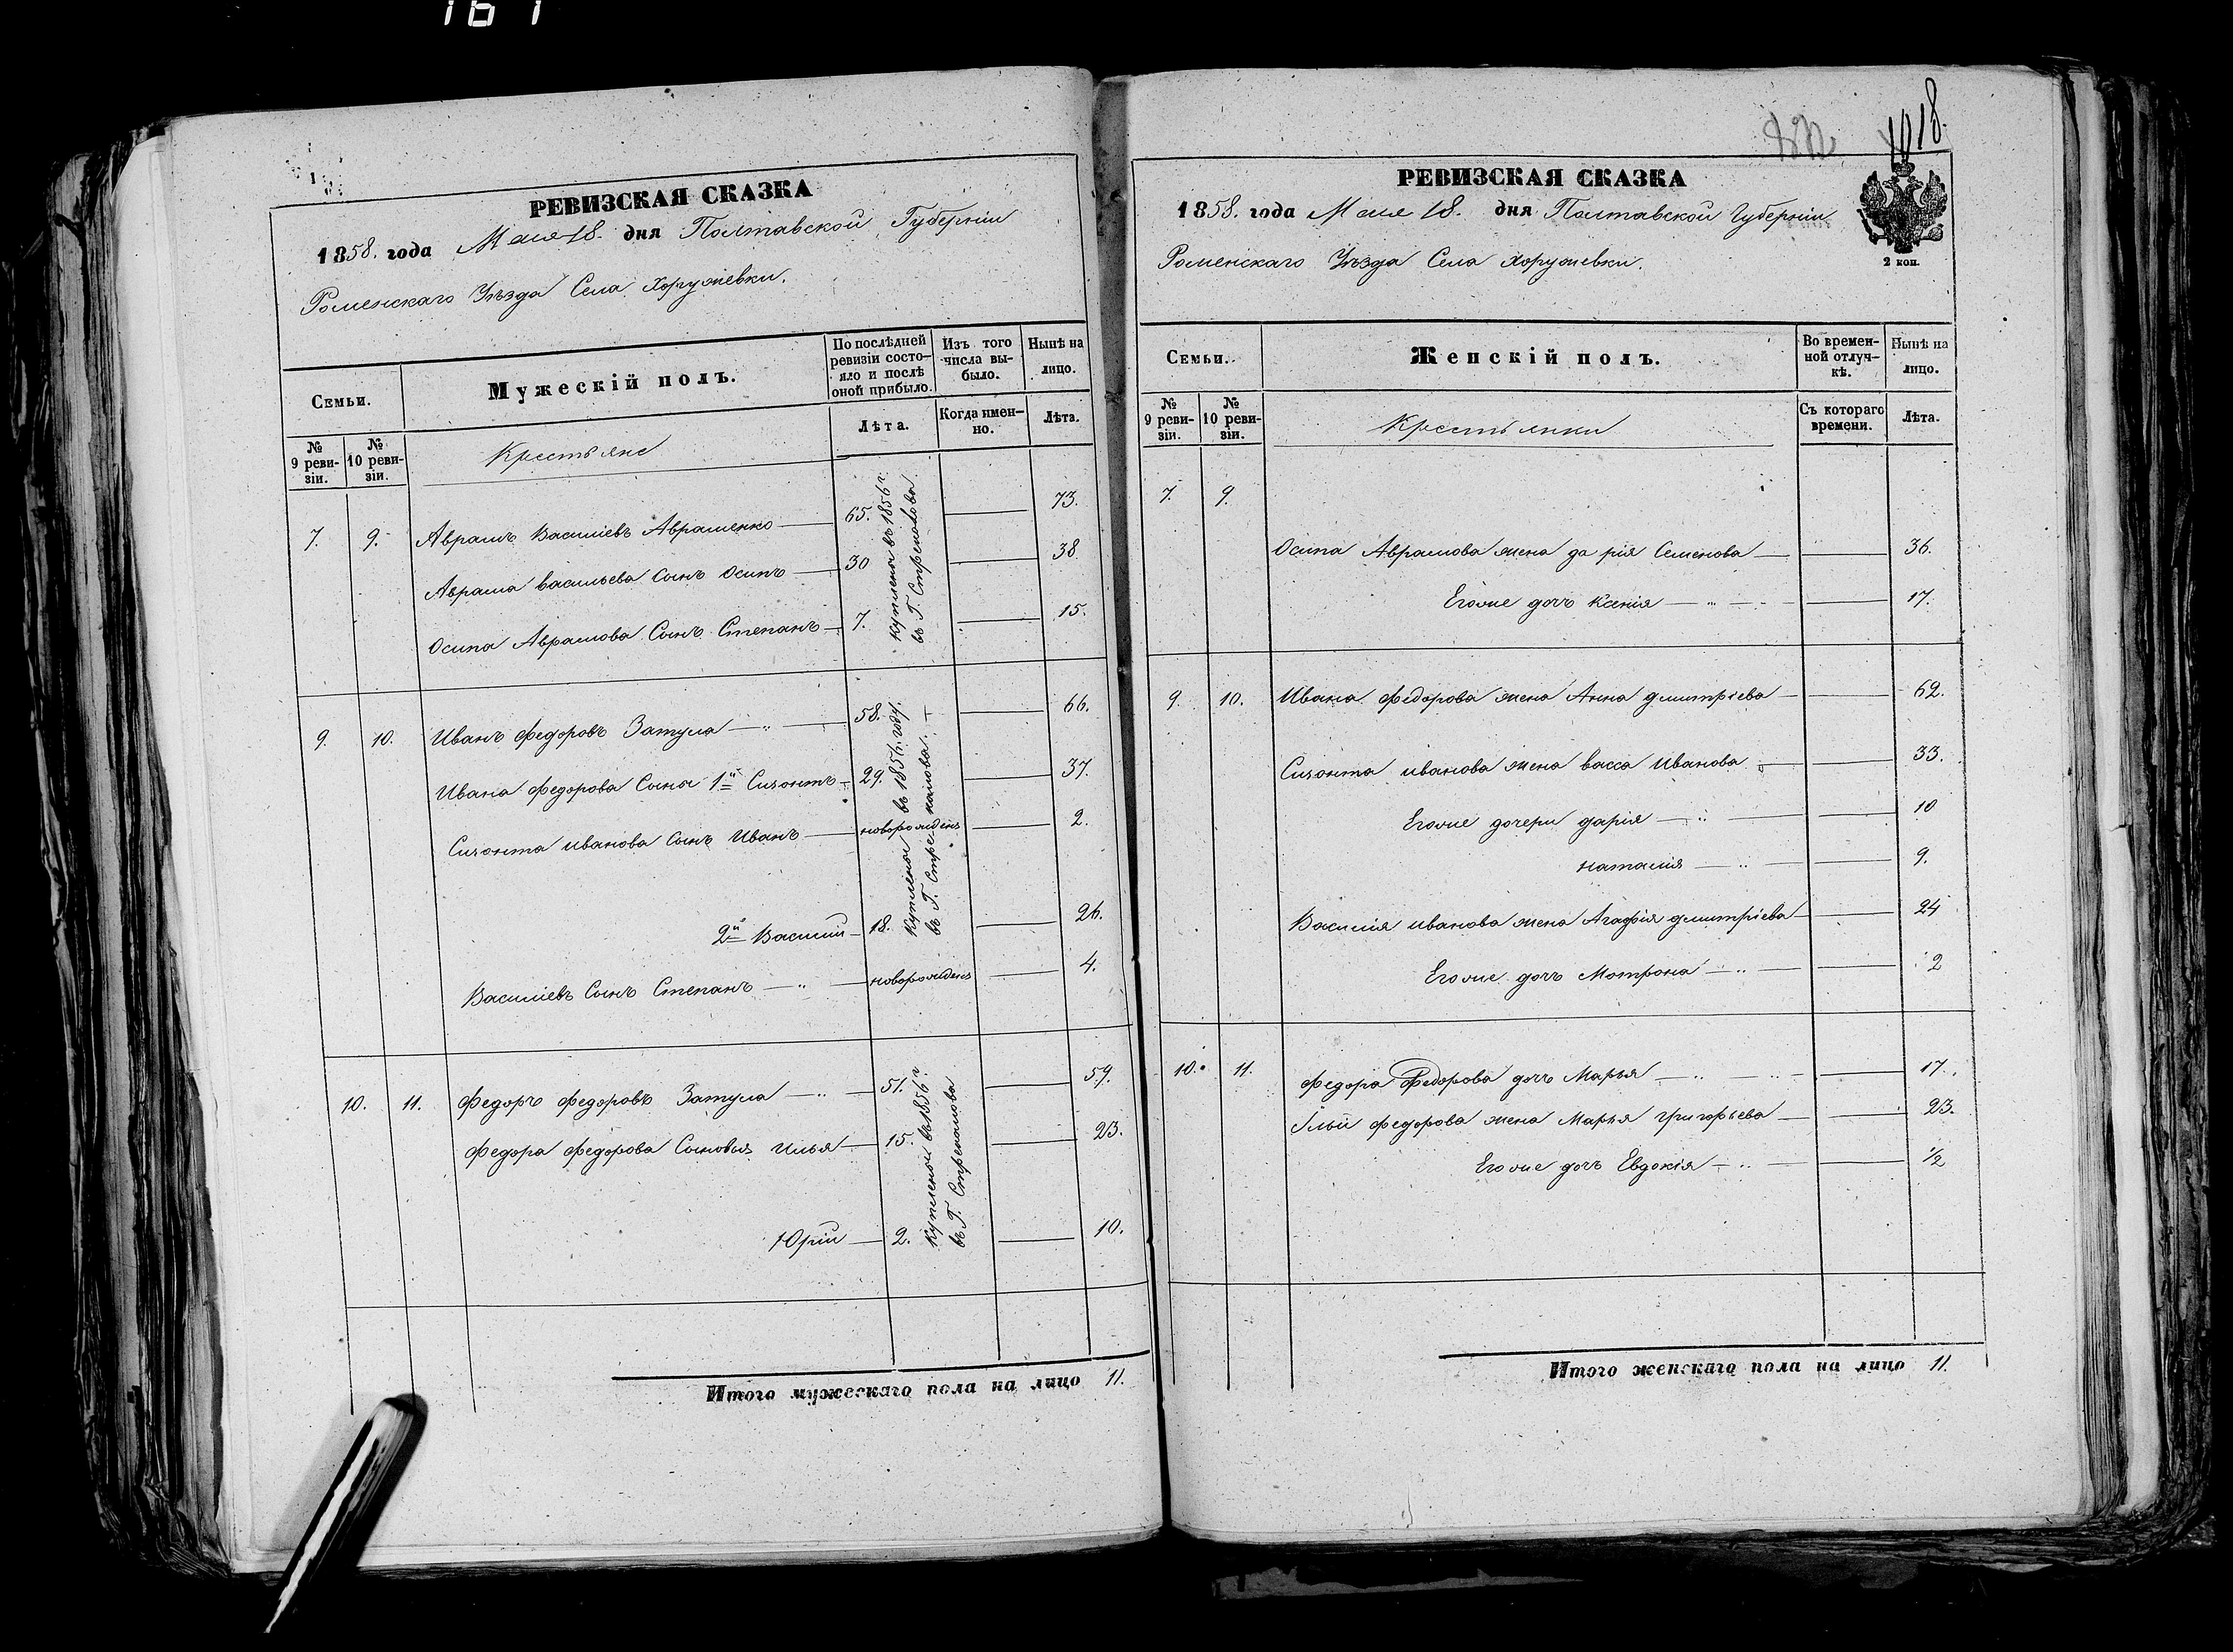 161
РЕВИЗСКАЯ СКАЗКА
1858. года Мая 18. дня Полтавской Губерніи
Роменскаго Уѣзда Села Хоружевки.
Семьи.
Мужескій полъ.
По послѣдней ревизіи состояло и послѣ оной прибыло.
Изъ того числа выбыло.
Нынѣ на лицо.
№ 9 ревизіи.
№ 10 ревизіи.
Крестьяне
Лѣта.
Когда именно.
Лѣта.
7. 9. Аврамъ Василіевъ Авраменко 65. 73.
Аврама Васильева Сынъ Осипъ 30 38.
Осипа Аврамова Сынъ Степанъ 7. 15.
куплены въ 1856 г.
въ Г.
9. 10. Иванъ Федоровъ Затула 58. 66.
Ивана Федорова Сыны 1й Сизонтъ 29. 37.
Сизонта Иванова Сынъ Иванъ новорожденъ 2.
2й Василий 18. 26.
Василіевъ Сынъ Степанъ новорожденъ 4.
куплены въ 1856. году.
въ Г.
10. 11. Федоръ Федоровъ Затула 51. 59.
Федора Федорова Сыновья Илья 15. 23.
Юрій 2. 10.
куплены въ 1856 г.
въ Г.
Итого мужескаго пола на лицо 11.
18.
РЕВИЗСКАЯ СКАЗКА
1858. года Мая 18. дня Полтавской Губерніи
2 коп.
Роменскаго Уѣзда Села Хоружевки.
Семьи.
Женскій полъ.
Во временной отлучкѣ.
Нынѣ на лицо.
№ 9 ревизіи.
№ 10 ревизіи.
Крестьянки
Съ котораго времени.
Лѣта.
7. 9.
Осипа Аврамова жена Дарія Семенова 36.
Егоже дочь Ксенія 17.
9. 10. Ивана Федорова жена Анна Дмитріева 62.
Сизонта Иванова жена Васса Иванова 33.
Егоже дочери Дарія 10
Наталія 9.
Василія Иванова жена Агафія Дмитріева 24
Егоже дочь Мотрона 2
10. 11. Федора Федорова дочь Марья 17.
Ильи Федорова жена Марья Григорьева 23.
Егоже дочь Евдокія 1/2
Итого женскаго пола на лицо 11.